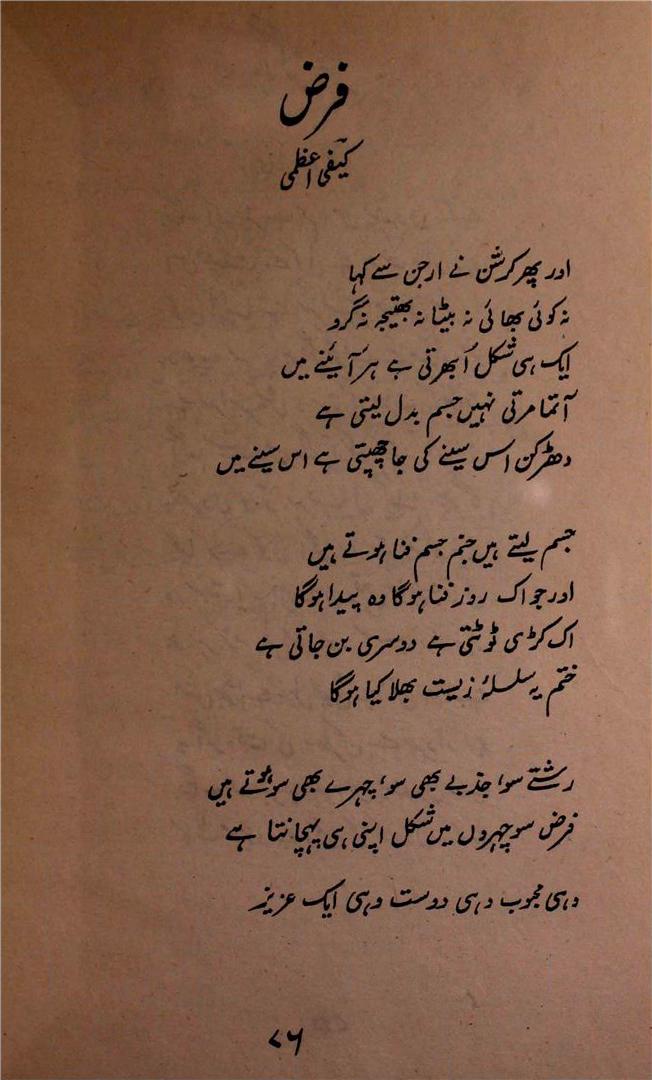 فرض
کیفی اعظمی
اور پھر کرشن نے ارجن سے کہا
نہ کوئی بھائی نہ بیٹا نہ بھتیجہ نہ گرو
ایک ہی شکل اُبھرتی ہے ہر آیئنے میں
آتما مرتی نہیں جسم بدل لیتی ہے
دھڑکن اس سینے کی جا چھپتی ہے اس سینے میں
جسم لیتے ہیں جنم جسم فنا ہوتے ہیں
اور جو اک روز فنا ہوگا وہ پیدا ہوگا
اک کڑی ٹوٹتی ہے دوسری بن جاتی ہے
ختم یہ سلسلۂ زیست بھلا کیا ہوگا
رشتے سو، جذبے بھی سو، چہرے بھی سو ہوتے ہیں
فرض سو چہروں میں شکل اپنی ہی پہچانتا ہے
وہی محبوب وہی دوست وہی ایک عزیز
۷۶